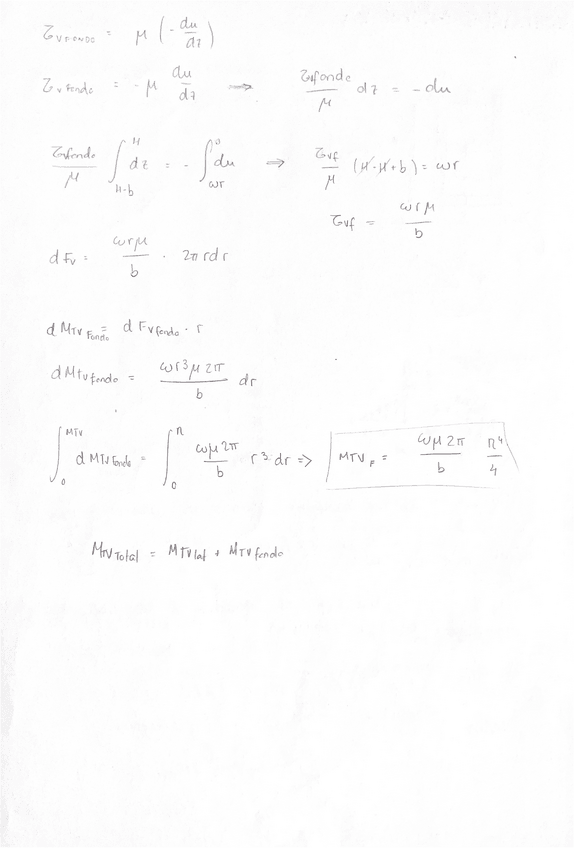 τ_v fondo = μ (- du/dz)
τ_v fondo = - μ du/dz ⟹ τ_vfondo/μ dz = - du
τ_vfondo/μ ∫_{H-b}^{H} dz = - ∫_{ωr}^{0} du ⟹ τ_vf/μ (H - H + b) = ωr
τ_vf = ωrμ/b
dF_v = ωrμ/b · 2π r dr
dM_TV Fondo = dF_v fondo · r
dM_tv fondo = ωr³μ2π/b dr
∫_0^{MTV} dM_TV fondo = ∫_0^R ωμ2π/b r³ dr => M_TV_F = ωμ2π/b R⁴/4
M_TV Total = M_TV lat + M_TV fondo